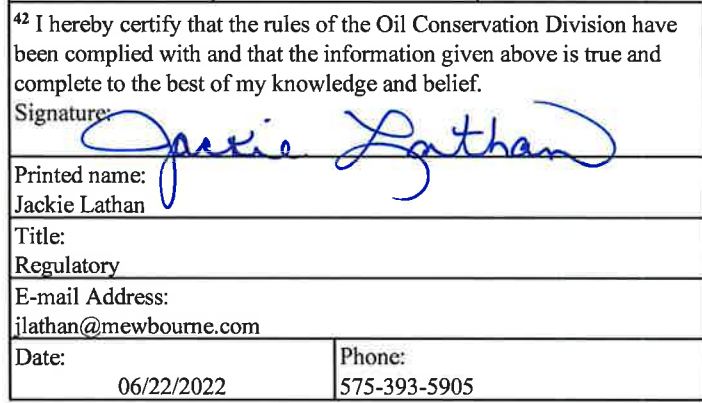 42 I hereby certify that the rules of the Oil Conservation Division have
been complied with and that the information given above is true and
complete to the best of my knowledge and belief.
Signature:
Jackie Lathan
Printed name:
Jackie Lathan
Title:
Regulatory
E-mail Address:
jlathan@mewbourne.com
Date:
Phone:
06/22/2022
575-393-5905